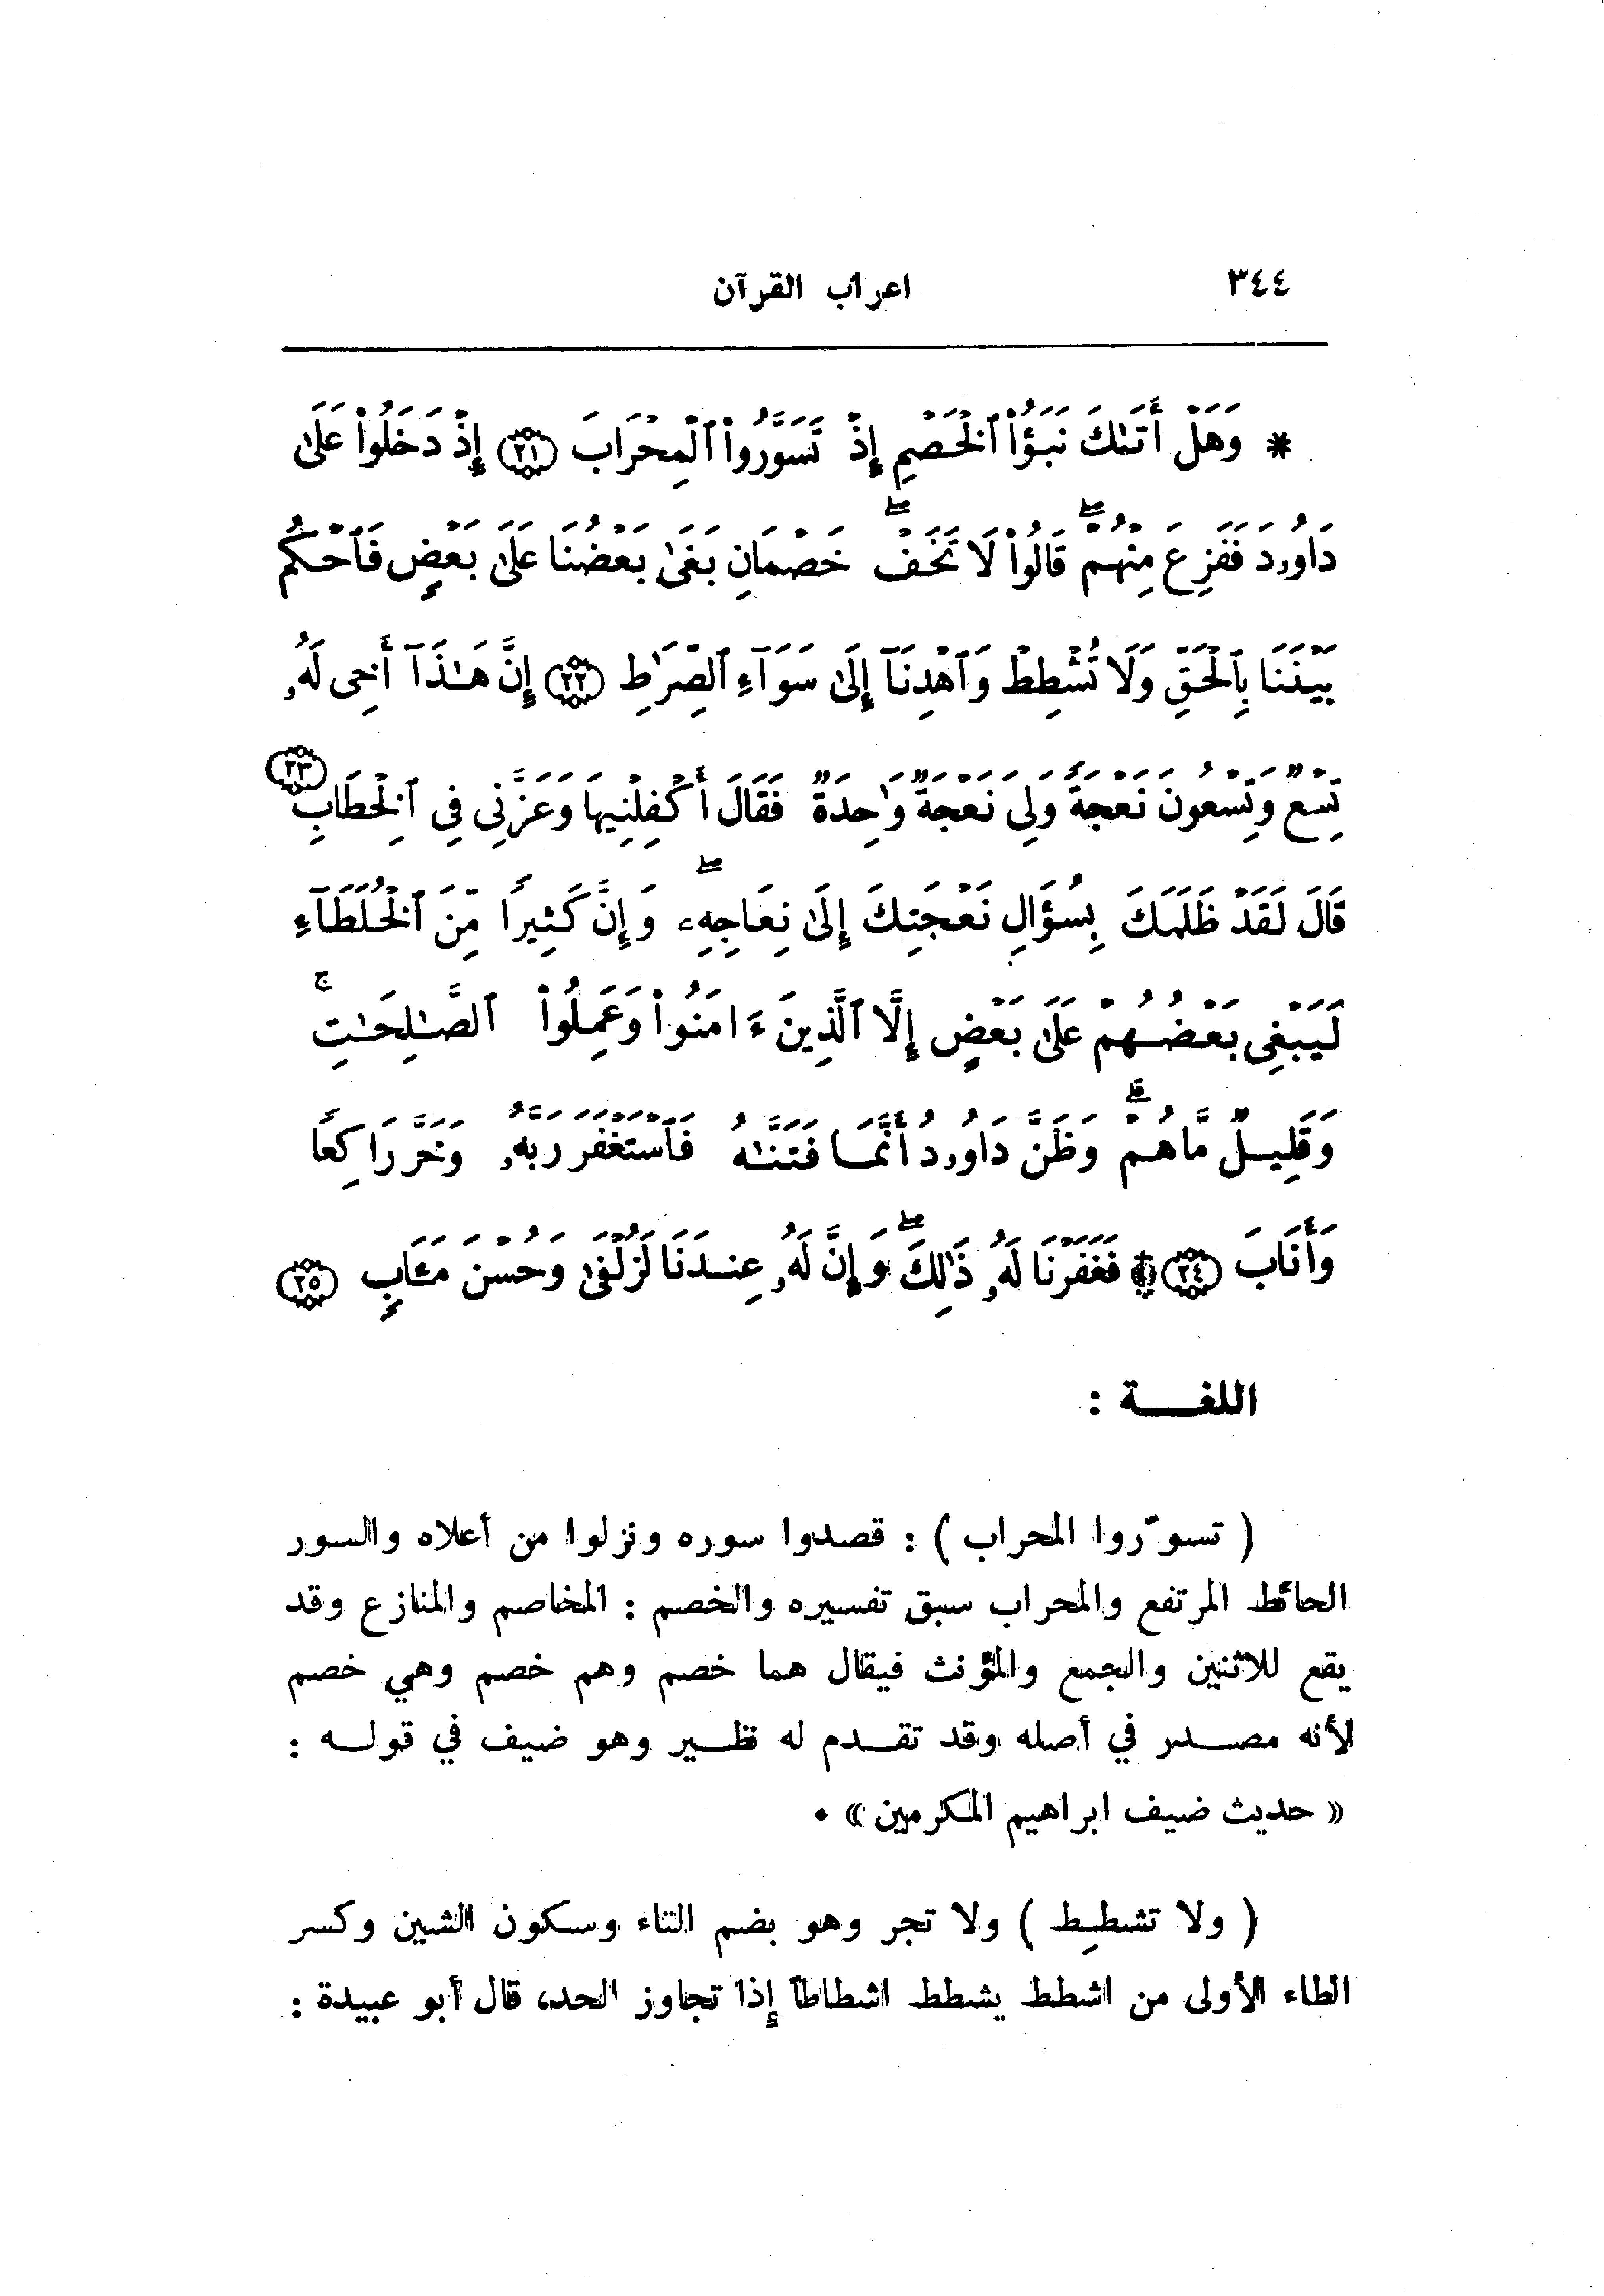 ٣٤٤ اعراب القرآن
* وَهَلْ أَتَىٰكَ نَبَؤُاْ ٱلْخَصْمِ إِذْ تَسَوَّرُواْ ٱلْمِحْرَابَ ﴿٢١﴾ إِذْ دَخَلُواْ عَلَىٰ
دَاوُۥدَ فَفَزِعَ مِنْهُمْۖ قَالُواْ لَا تَخَفْۖ خَصْمَانِ بَغَىٰ بَعْضُنَا عَلَىٰ بَعْضٍ فَٱحْكُم
بَيْنَنَا بِٱلْحَقِّ وَلَا تُشْطِطْ وَٱهْدِنَآ إِلَىٰ سَوَآءِ ٱلصِّرَٰطِ ﴿٢٢﴾ إِنَّ هَٰذَآ أَخِى لَهُۥ
تِسْعٌ وَتِسْعُونَ نَعْجَةً وَلِىَ نَعْجَةٌ وَٰحِدَةٌ فَقَالَ أَكْفِلْنِيهَا وَعَزَّنِى فِى ٱلْخِطَابِ ﴿٢٣﴾
قَالَ لَقَدْ ظَلَمَكَ بِسُؤَالِ نَعْجَتِكَ إِلَىٰ نِعَاجِهِۦۖ وَإِنَّ كَثِيرًا مِّنَ ٱلْخُلَطَآءِ
لَيَبْغِى بَعْضُهُمْ عَلَىٰ بَعْضٍ إِلَّا ٱلَّذِينَ ءَامَنُواْ وَعَمِلُواْ ٱلصَّٰلِحَٰتِۚ
وَقَلِيلٌ مَّا هُمْۗ وَظَنَّ دَاوُۥدُ أَنَّمَا فَتَنَّٰهُ فَٱسْتَغْفَرَ رَبَّهُۥ وَخَرَّ رَاكِعًا
وَأَنَابَ ﴿٢٤﴾ ۩ فَغَفَرْنَا لَهُۥ ذَٰلِكَۖ وَإِنَّ لَهُۥ عِندَنَا لَزُلْفَىٰ وَحُسْنَ مَـَٔابٍ ﴿٢٥﴾
اللغـــة :
( تسوّروا المحراب ) : قصدوا سوره ونزلوا من أعلاه والسور
الحائط المرتفع والمحراب سبق تفسيره والخصم : المخاصم والمنازع وقد
يقع للاثنين والجمع والمؤنث فيقال هما خصم وهم خصم وهي خصم
لأنه مصدر في أصله وقد تقدم له نظير وهو ضيف في قوله :
« حديث ضيف ابراهيم المكرمين » ٠
( ولا تشطِط ) ولا تجر وهو بضم التاء وسكون الشين وكسر
الطاء الأولى من اشطط يشطط اشطاطاً إذا تجاوز الحد، قال أبو عبيدة :